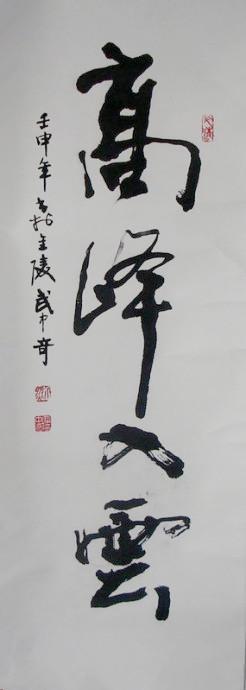 高峰入雲
壬申年 武中奇